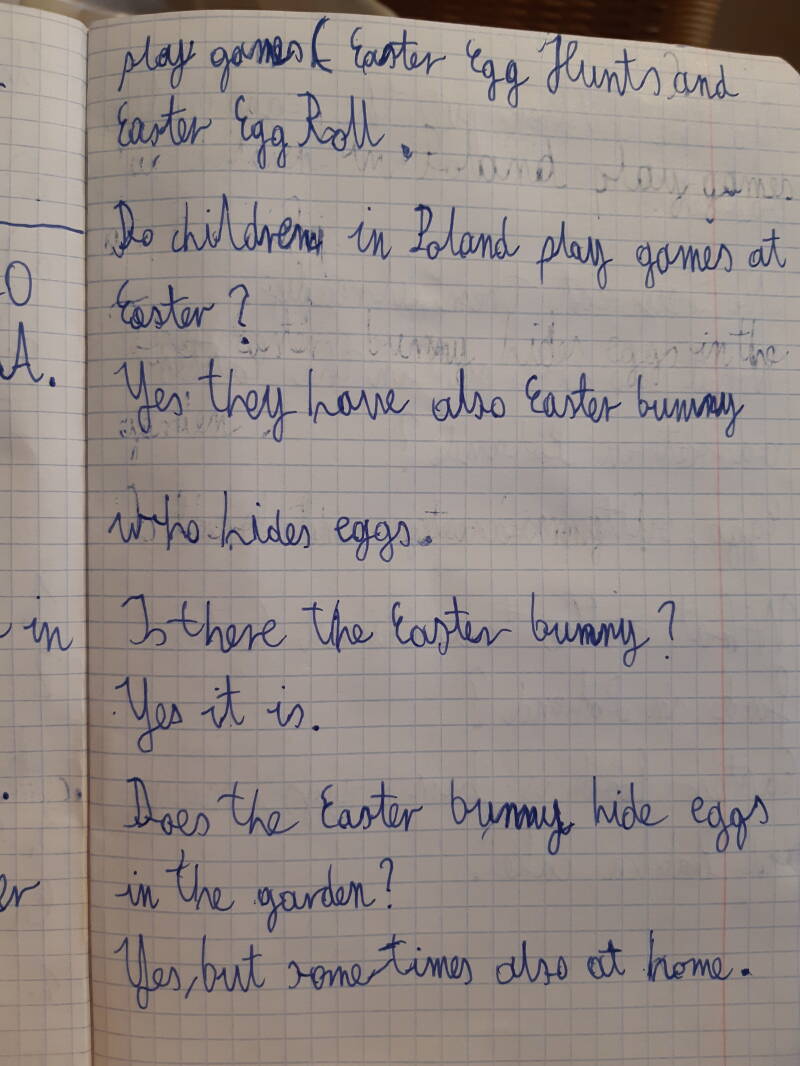 play games ( Easter Egg Hunts and
Easter Egg Roll.
Do children in Poland play games at
Easter?
Yes they have also Easter bunny
who hides eggs.
in
Is there the Easter bunny?
Yes it is.
Does the Easter bunny hide eggs
er
in the garden?
Yes, but sometimes also at home.
O
A.